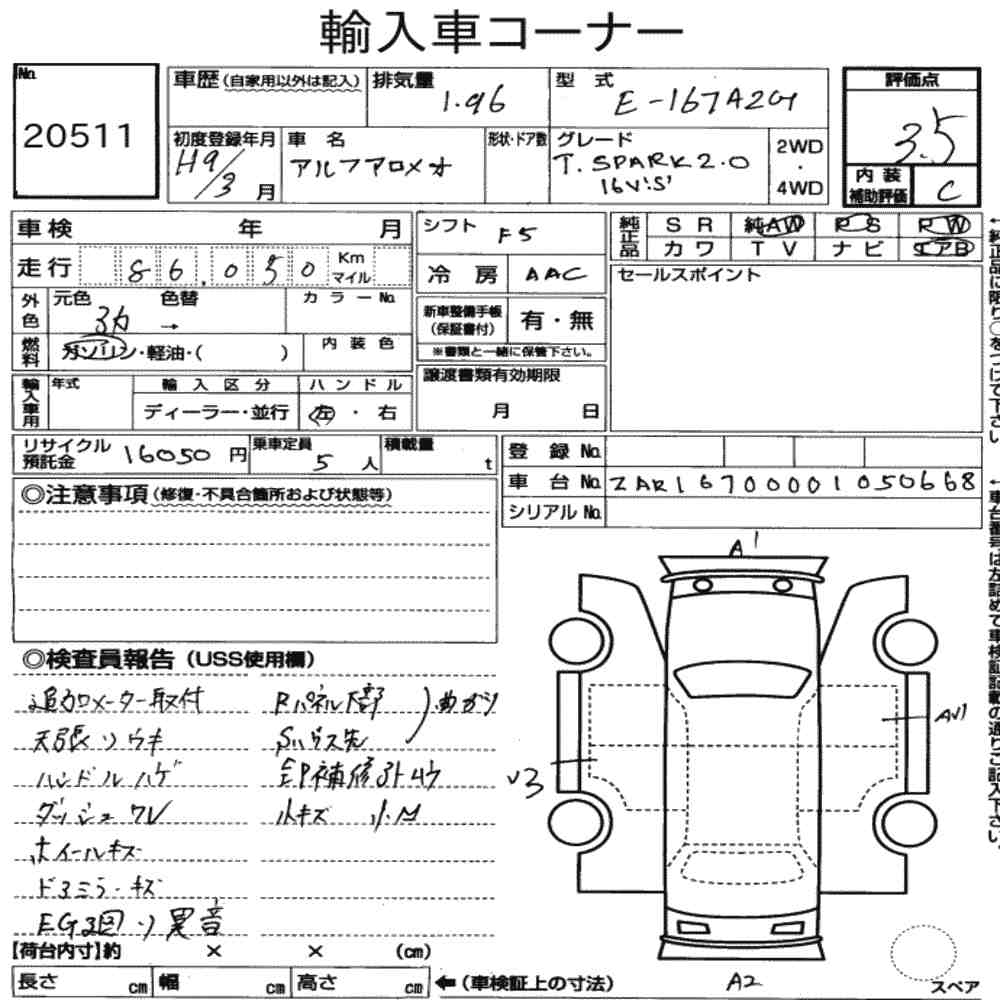 輸入車コーナー
No.
20511
車歴(自家用以外は記入)
排気量
1.96
型式
E-167A2G
評価点
3.5
初度登録年月
H9/3月
車名
アルファロメオ
形状・ドア数
グレード
T. SPARK 2.0
16V 'S'
2WD
・
4WD
内装
補助評価
C
車検 年 月
シフト
F5
純正品
SR
純AW
PS
PW
カワ
TV
ナビ
エアB
走行
86,050
Km
マイル
冷房
AAC
セールスポイント
外色
元色
色替
カラーNo.
→
新車整備手帳
(保証書付)
有・無
※書類と一緒に保管下さい。
燃料
ガソリン・軽油・( )
内装色
輸入車用
年式
輸入区分
ハンドル
ディーラー・並行
左・右
譲渡書類有効期限
月 日
リサイクル
預託金
16050円
乗車定員
5人
積載量
t
登録No.
車台No.
ZAR16700001050668
シリアルNo.
◎注意事項(修復・不具合箇所および状態等)
◎検査員報告(USS使用欄)
追加メーター取付
天張りウキ
ハンドルハゲ
ダッシュワレ
ホイールキズ
ドアミラーキズ
EG廻り異音
Rパネル下部
曲がり
小キズ
A1
AW1
V3
A2
スペア
【荷台内寸】約 × × (cm)
長さ cm
幅 cm
高さ cm
←(車検証上の寸法)
←純正品に限り○をつけて下さい
←車台番号は左詰めで車検証記載の通りご記入下さい。